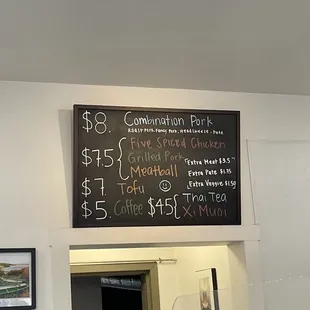 $8. Combination Pork
Roast Pork, Fancy Pork, Headcheese - Pate
$7.5 { Five Spiced Chicken
Grilled Pork
Meatball
Extra Meat $3.5
Extra Pate $1.75
Extra Veggie $1.50
$7 Tofu
$5. Coffee $4.5 { Thai Tea
Xi Muoi